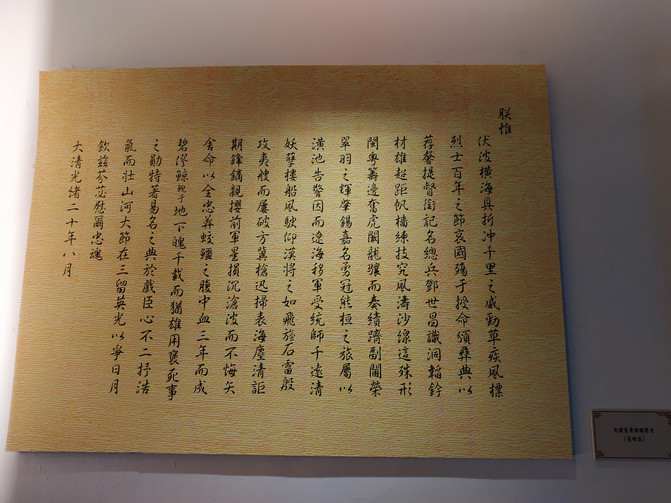 朕惟
伏波橫海具折冲千里之威勁草疾風標
烈士百年之節哀國殤于授命頒彝典以
荐馨提督銜記名總兵鄧世昌識洞韜鈐
材雄超距帆檣練技突風濤沙線這殊形
閩粵籌邊奮虎闞龍驤而奏績躋副閫榮
翠羽之輝肇錫嘉名勇冠熊桓之旅屬以
潢池告警因而遼海移軍受統師千遠清
妖孽樓船風駛仰漢將之如飛旌石雷殷
攻夷艘而屢破方冀檣遲掃表海塵清詎
期鋒鏑親攖前軍星損沉滄波而不悔矢
舍命以全忠葬蛟鱷之腹中血三年而成
碧僇鯨鯢于地下魄千載而猶雄用褒死事
之勛特著易名之典於戲臣心不二抒浩
氣而壯山河大節在三留英光以爭日月
欽茲芬苾慰爾忠魂
大清光緒二十年八月